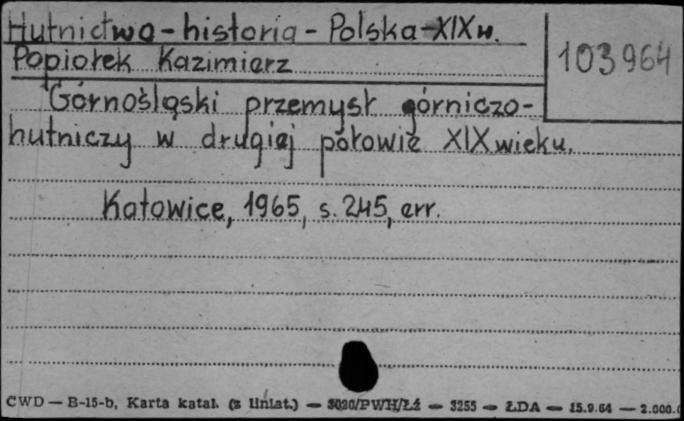 Hutnictwo - historia - Polska - XIX w.
103964
Popiołek Kazimierz
Górnośląski przemysł górniczo-
hutniczy w drugiej połowie XIX wieku.
Katowice, 1965, s. 245, err.
CWD — B-15-b, Karta katal. (z liniat.) — 3020/PWH/Łź — 3255 — ŁDA — 15.9.64 — 2.000.